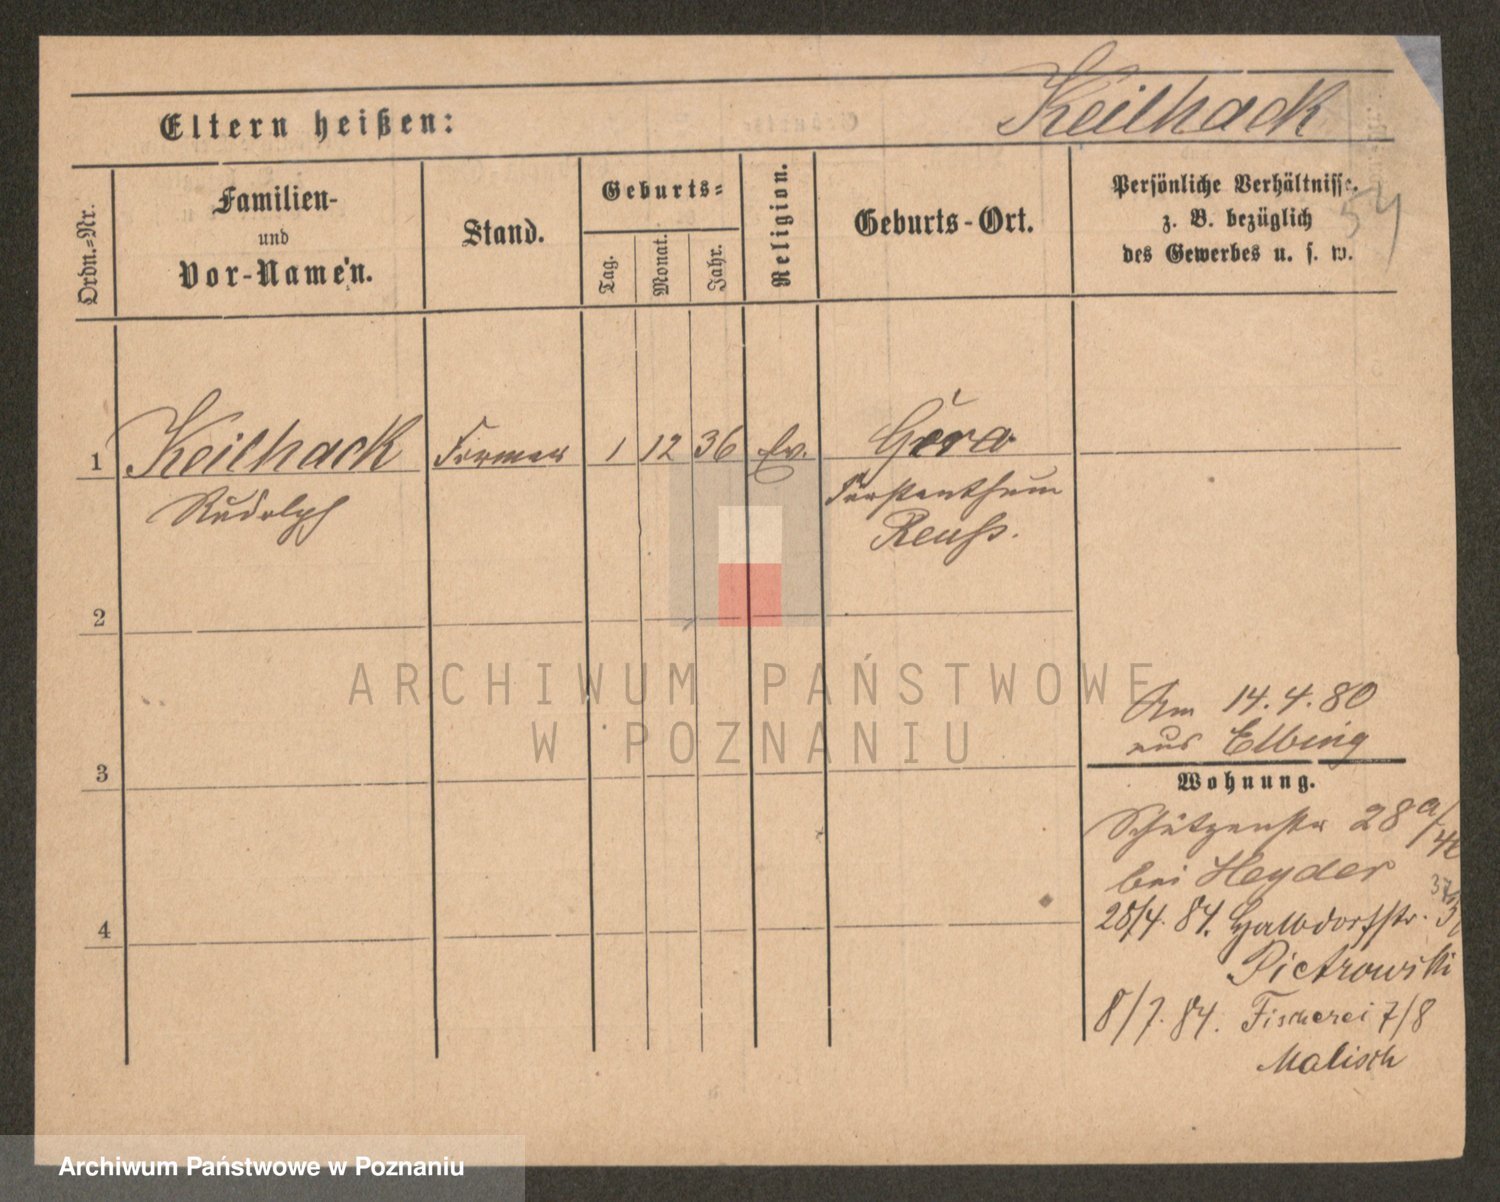 Keilhack
Eltern heißen:
54
Ordn.=Nr.
Familien-
und
Vor-Namen.
Stand.
Geburts=
Tag.
Monat.
Jahr.
Religion.
Geburts-Ort.
Persönliche Verhältnisse.
z. B. bezüglich
des Gewerbes u. s. w.
1 Keilhack Former 1 12 36 Ev. Gera
Rudolph Fürstenthum
Reuss.
2
3
4
Am 14.4.80
aus Elbing
Wohnung.
Schützenstr 28a/
bei Heyder
28/4. 84. Halbdorfstr.
Pietrowski
8/7. 84. Fischerei 7/8
Malisch
ARCHIWUM PAŃSTWOWE
W POZNANIU
Archiwum Państwowe w Poznaniu